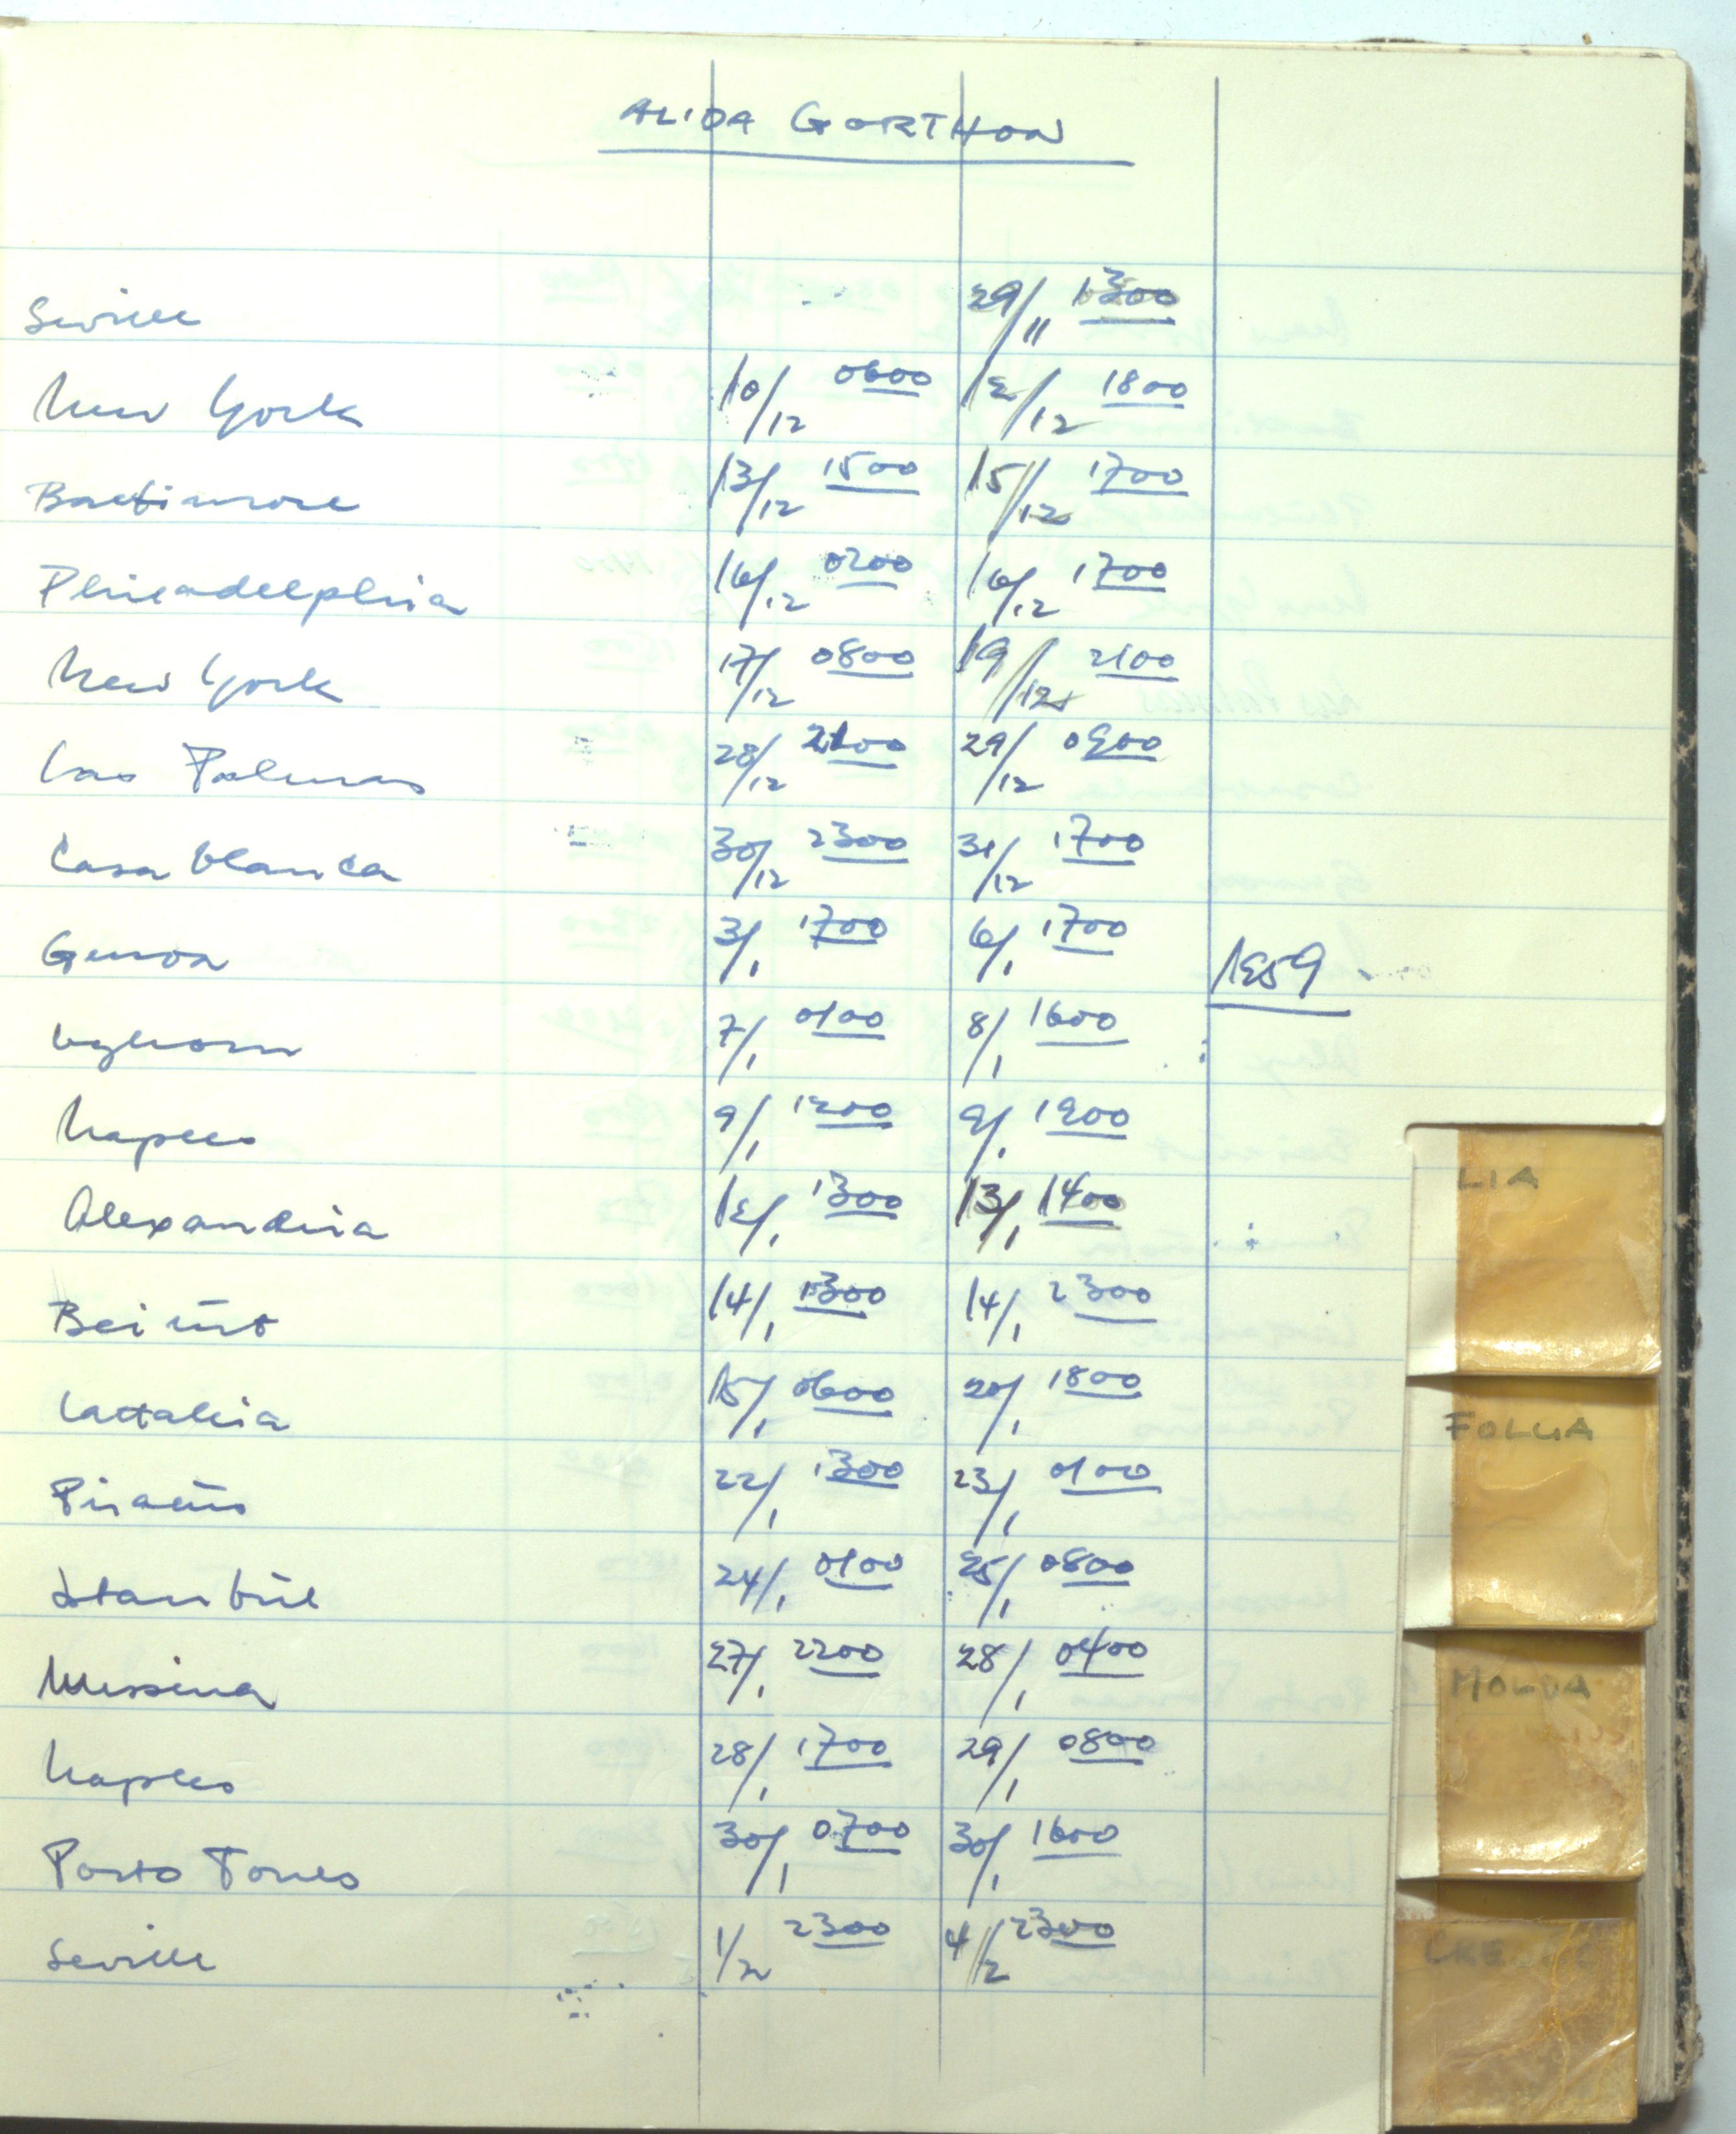 ALIDA GORTHON
Seville 29/11 1300
New York 10/12 0600 12/12 1800
Baltimore 13/12 1500 15/12 1700
Philadelphia 16/12 0200 16/12 1700
New York 17/12 0800 19/12 2100
Las Palmas 28/12 2100 29/12 0900
Casablanca 30/12 2300 31/12 1700
Genoa 3/1 1700 6/1 1700 1959
Leghorn 7/1 0100 8/1 1600
Naples 9/1 1200 9/1 1900
Alexandria 12/1 1300 13/1 1400
Beirut 14/1 1300 14/1 2300
Lattakia 15/1 0600 20/1 1800
Piraeus 22/1 1300 23/1 0100
Istanbul 24/1 0100 25/1 0800
Messina 27/1 2200 28/1 0400
Naples 28/1 1700 29/1 0800
Porto Torres 30/1 0700 30/1 1600
Seville 1/2 2300 4/2 2300
LIA
FOLGA